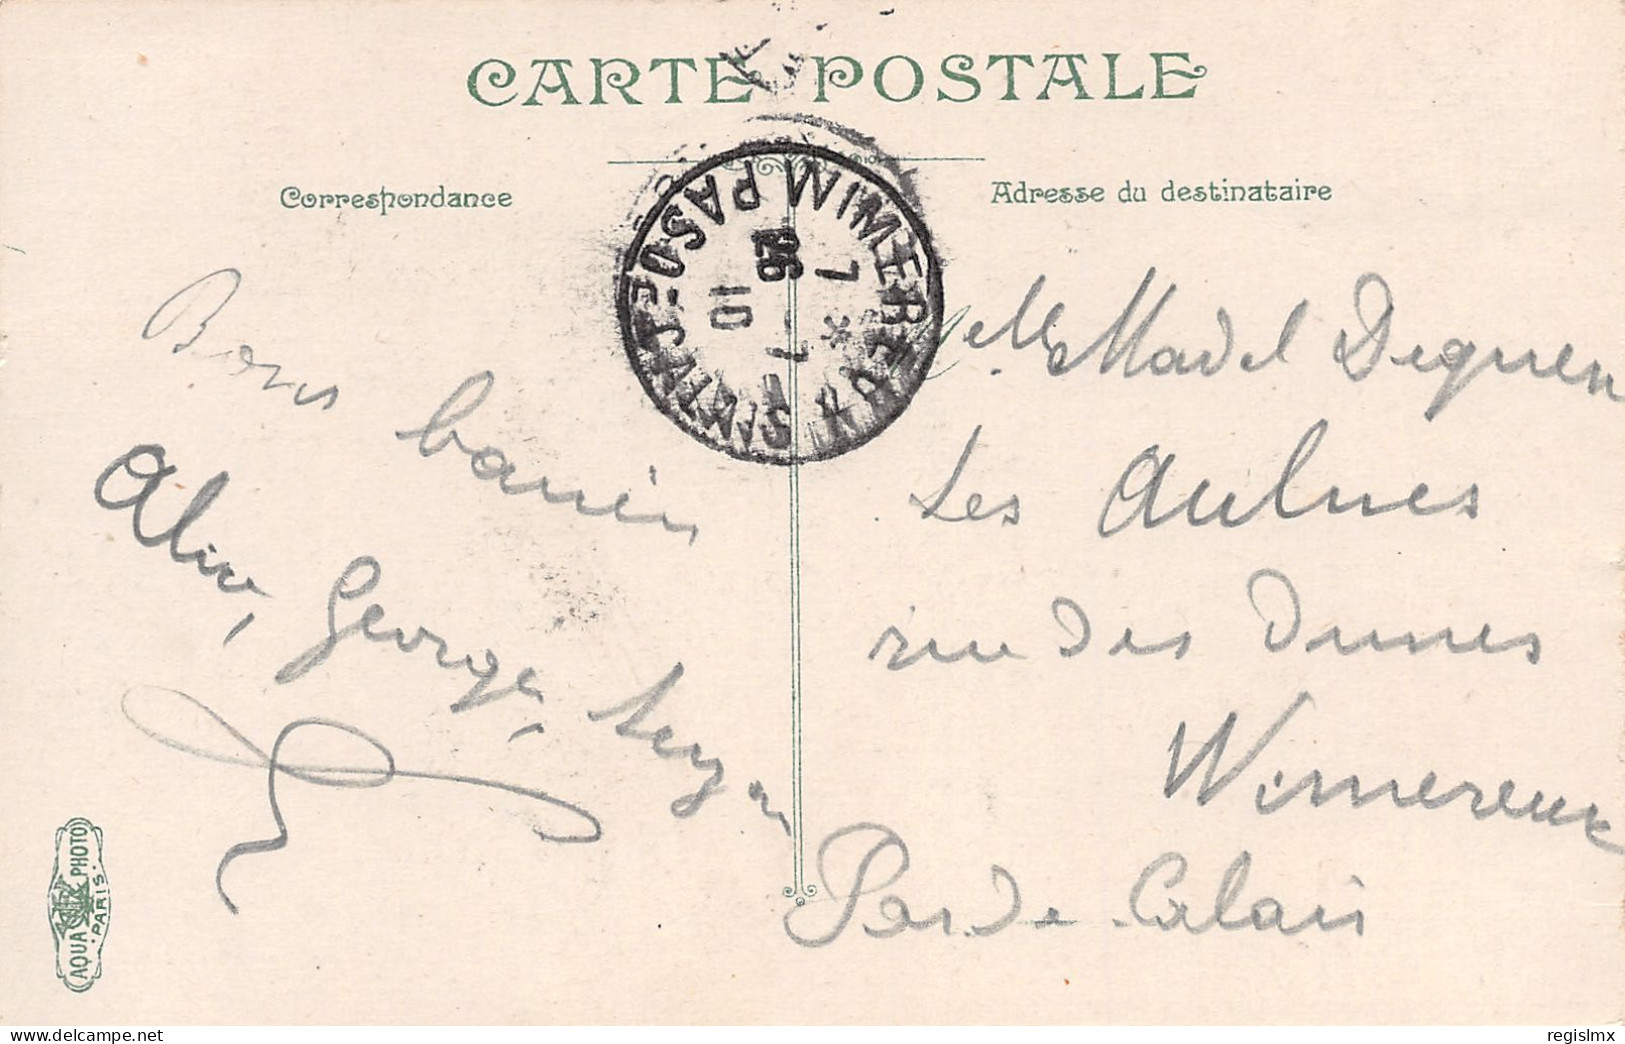 CARTE POSTALE
Correspondance
Adresse du destinataire
WIMEREUX
PAS-DE-CALAIS
7 *
26
10
Bons
baisers
Georges, Suzan
Melle Madel
Les Aulnes
rue des Dunes
Wimereux
Pas de Calais
AQUA PHOTO
PARIS
delcampe.net
regislmx